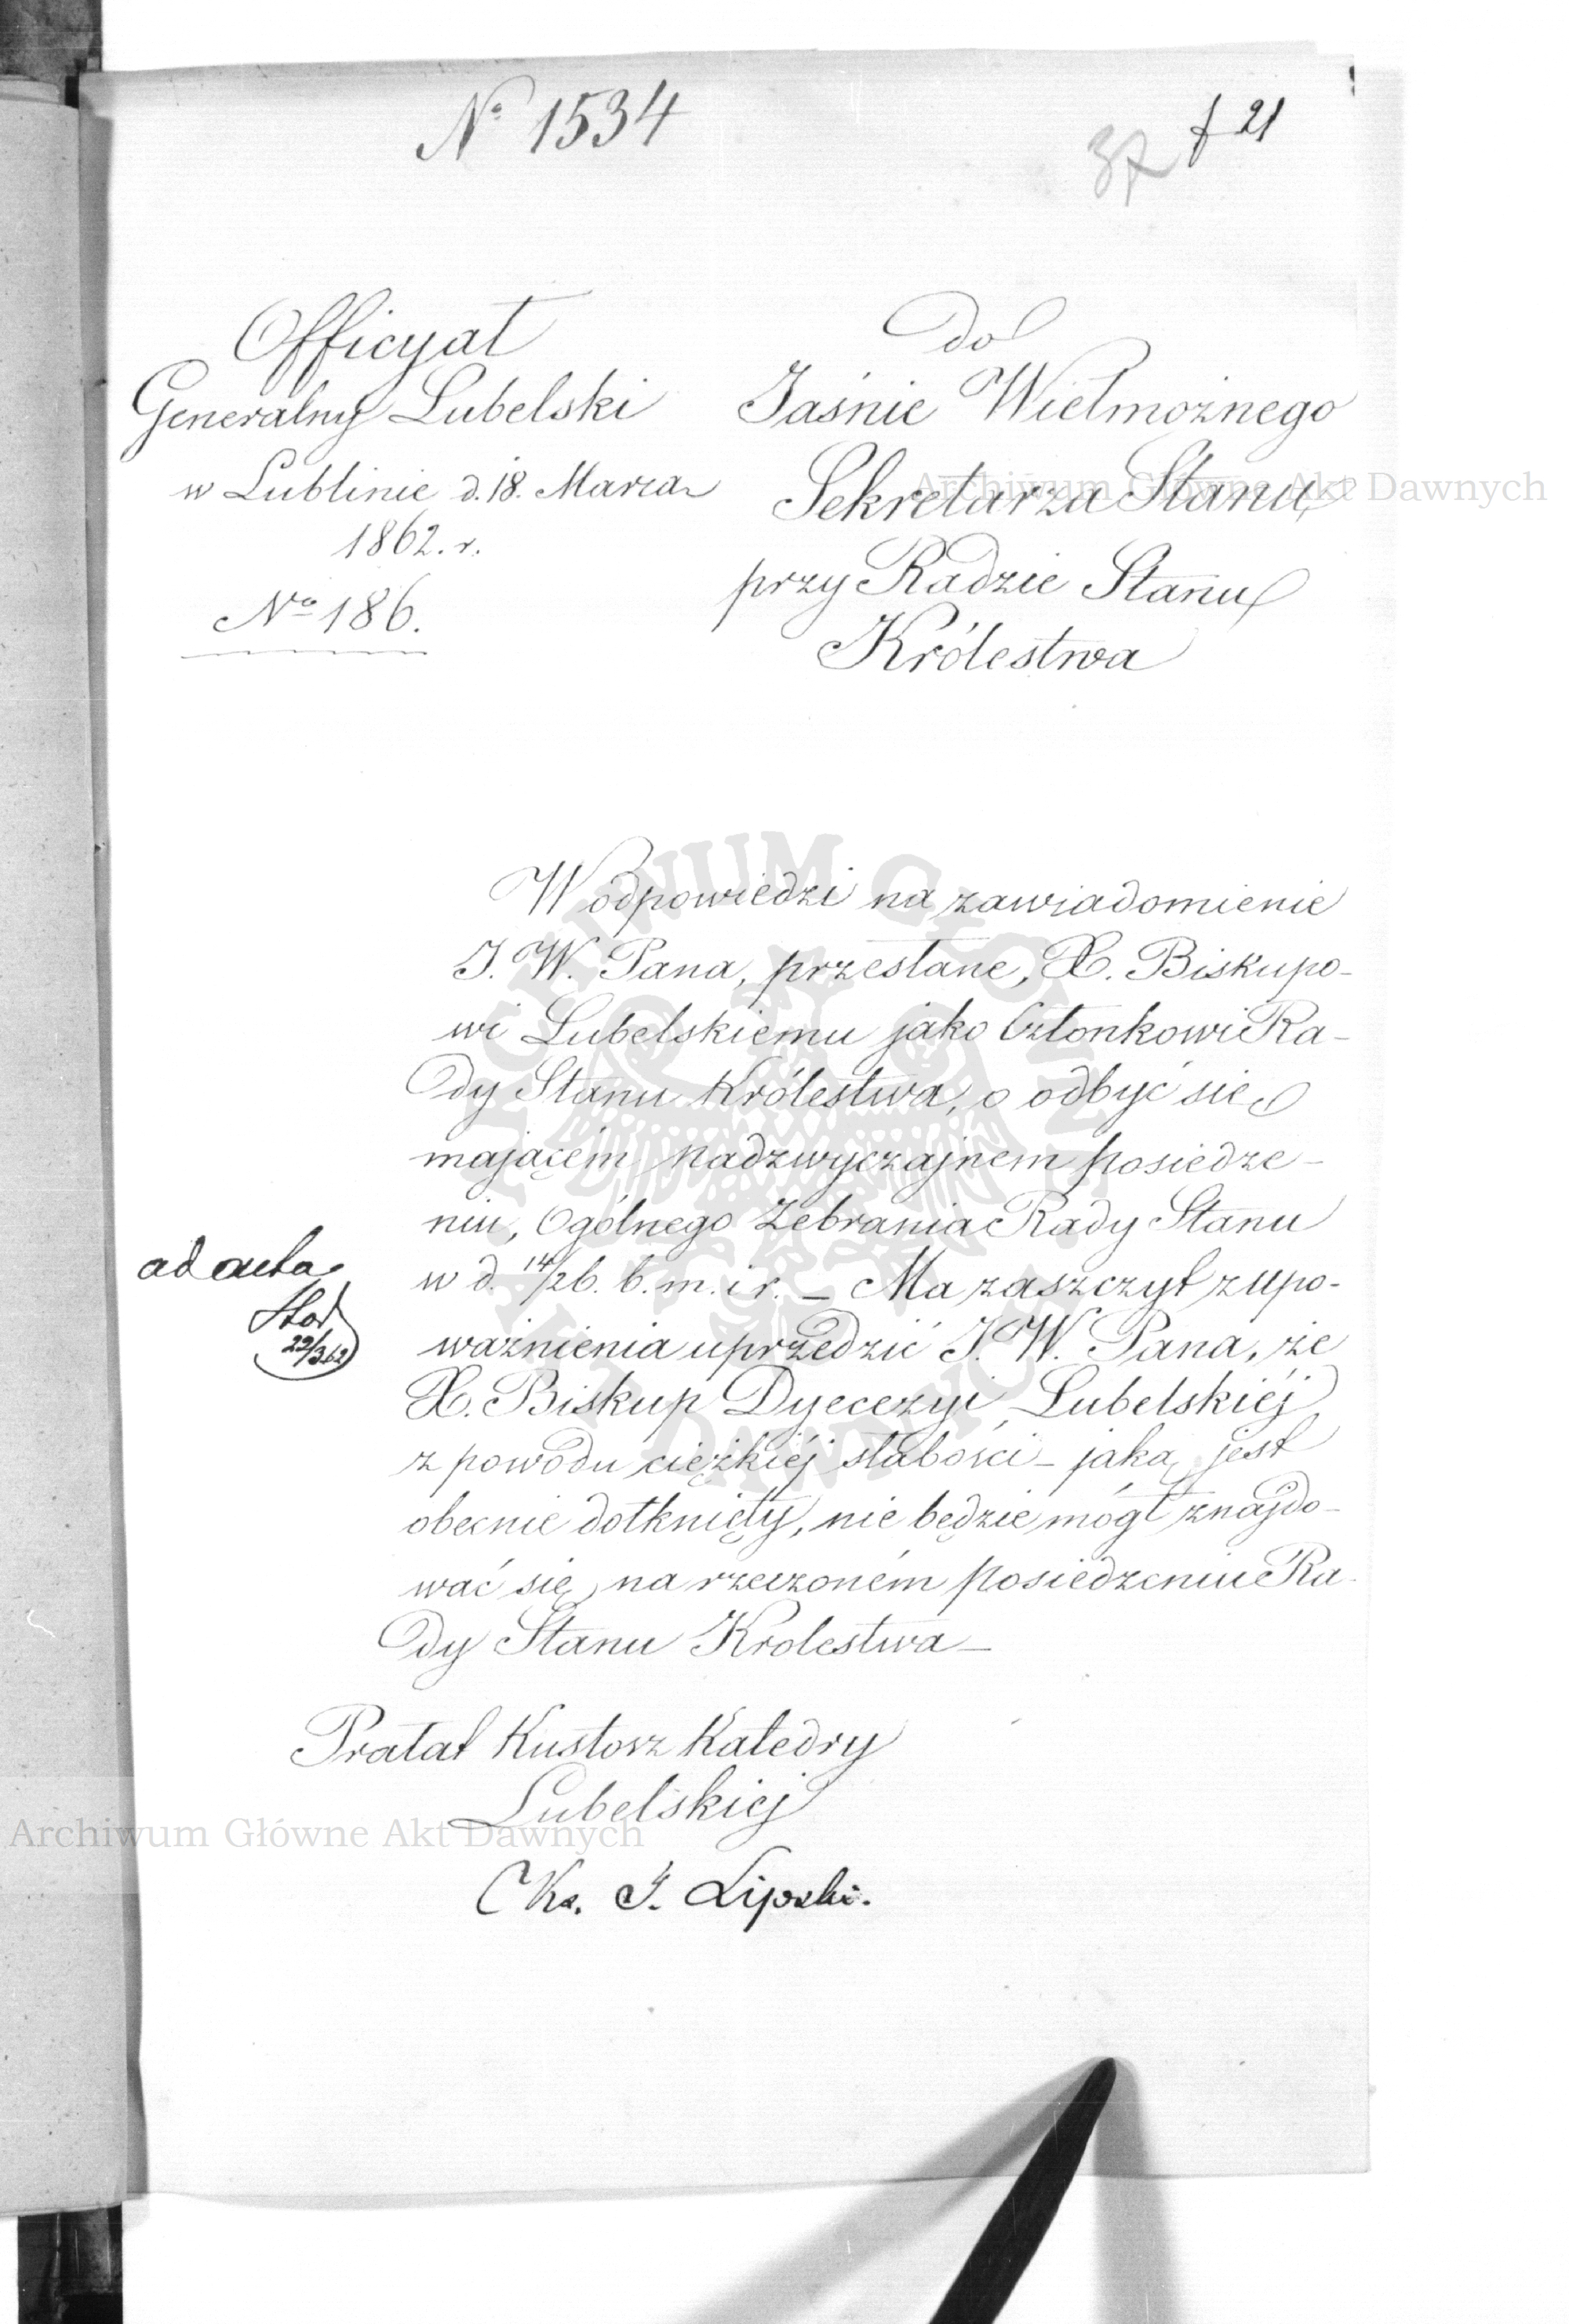 No 1534
37 f 21
Officyał
Generalny Lubelski
w Lublinie d. 18. Marca
1862. r.
No 186.
do
Jaśnie Wielmożnego
Sekretarza Stanu
przy Radzie Stanu
Królestwa
W odpowiedzi na zawiadomienie
J. W. Pana, przesłane, X. Biskupo-
wi Lubelskiemu jako Członkowi Ra-
dy Stanu Królestwa, o odbyć się
mającém nadzwyczajnem posiedze-
niu, Ogólnego Zebrania Rady Stanu
w d. 14/26. b. m. i r. – Ma zaszczyt z upo-
ważnienia uprzedzić J. W. Pana, że
X. Biskup Dyecezyi Lubelskiéj
z powodu ciężkiéj słabości – jaką jest
obecnie dotknięty, nie będzie mógł znajdo-
wać się na rzeczoném posiedzeniu Ra-
dy Stanu Krolestwa –
ad acta
22/3 62
Prałat Kustosz Katedry
Lubelskiej
Ks. J. Lipski.
Archiwum Główne Akt Dawnych
Archiwum Główne Akt Dawnych
ARCHIWUM GŁÓWNE AKT DAWNYCH